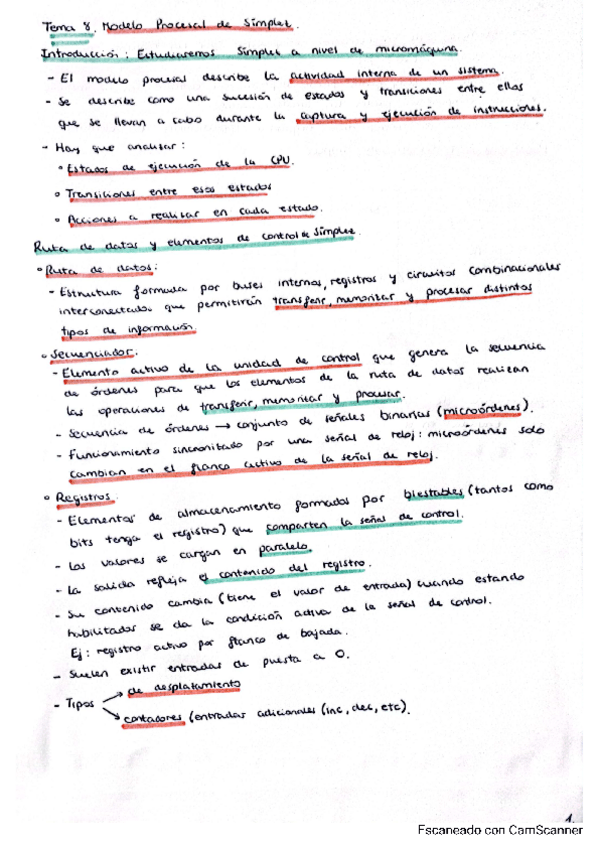 Tema 8. Modelo Procesal de Simplez.
Introducción: Estudiaremos Simplez a nivel de micromáquina.
- El modelo procesal describe la actividad interna de un sistema.
- Se describe como una sucesión de estados y transiciones entre ellos
que se llevan a cabo durante la captura y ejecución de instrucciones.
- Hay que analizar:
° Estados de ejecución de la CPU.
° Transiciones entre esos estados
° Acciones a realizar en cada estado.
Ruta de datos y elementos de control de Simplez.
° Ruta de datos:
- Estructura formada por buses internos, registros y circuitos combinacionales
interconectados que permitirán transferir, memorizar y procesar distintos
tipos de información.
° Secuenciador:
- Elemento activo de la unidad de control que genera la secuencia
de órdenes para que los elementos de la ruta de datos realizan
las operaciones de transferir, memorizar y procesar.
- Secuencia de órdenes → conjunto de señales binarias (microórdenes).
- Funcionamiento sincronizado por una señal de reloj: microórdenes solo
cambian en el flanco activo de la señal de reloj.
° Registros
- Elementos de almacenamiento formados por biestables (tantos como
bits tenga el registro) que comparten la señal de control.
- Los valores se cargan en paralelo.
- La salida refleja el contenido del registro.
- Su contenido cambia (tiene el valor de entrada) cuando estando
habilitados se da la condición activa de la señal de control.
Ej: registro activo por flanco de bajada.
- Suelen existir entradas de puesta a 0.
- Tipos → de desplazamiento
→ contadores (entradas adicionales (inc, dec, etc).
1.
Escaneado con CamScanner